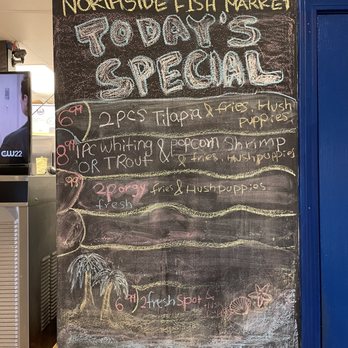 NORTHSIDE FISH MARKET
TODAY'S
SPECIAL
6 99 2 pcs Tilapia & fries, Hush puppies
8 99 1 PC Whiting & popcorn Shrimp
OR Trout & fries, Hushpuppies
6 99 2 porgy fries & Hushpuppies
fresh
6 99 2 fresh spot
CW22